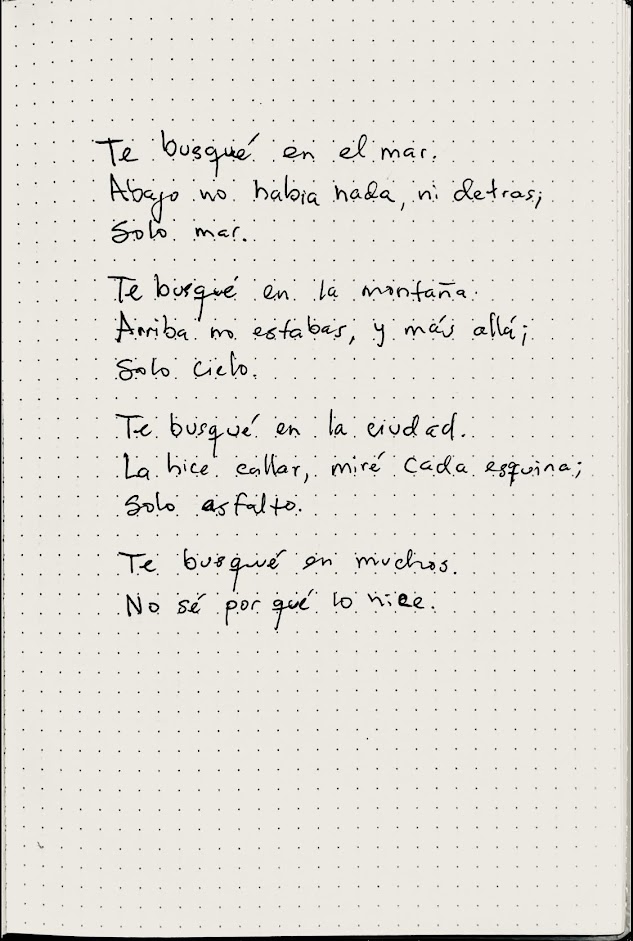 Te busqué en el mar.
Abajo no había nada, ni detras;
Solo mar.
Te busqué en la montaña.
Arriba no estabas, y más allá;
Solo cielo.
Te busqué en la ciudad.
La hice callar, miré cada esquina;
Solo asfalto.
Te busqué en muchos.
No sé por qué lo hice.